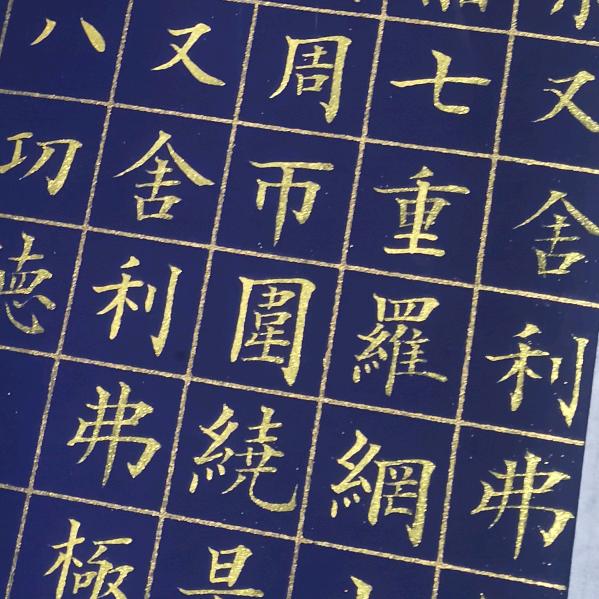 又舍利弗
七重羅網
周帀圍繞是
又舍利弗極
八功徳